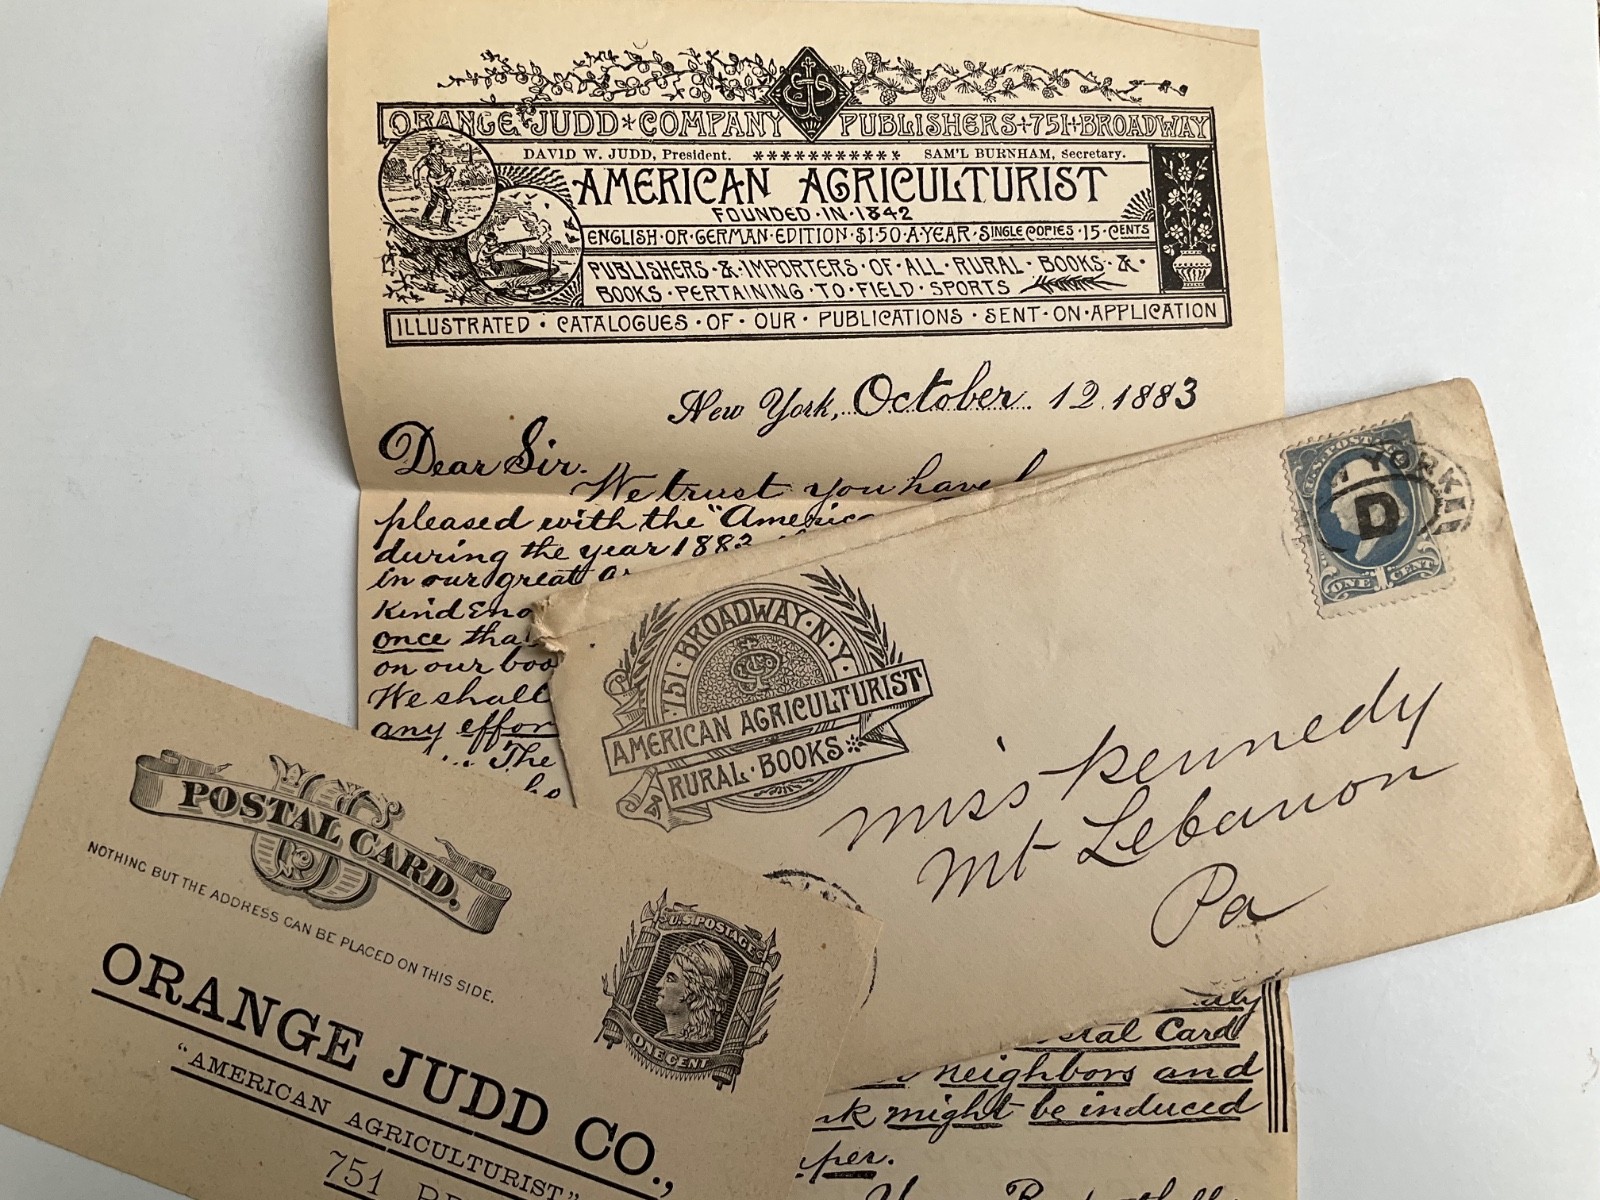 ORANGE JUDD * COMPANY PUBLISHERS + 751 + BROADWAY
DAVID W. JUDD, President. *********** SAM'L BURNHAM, Secretary.
AMERICAN AGRICULTURIST
FOUNDED · IN · 1842
ENGLISH · OR · GERMAN · EDITION · $1·50 · A · YEAR · SINGLE COPIES · 15 · CENTS
PUBLISHERS · & · IMPORTERS · OF · ALL · RURAL · BOOKS · & ·
BOOKS · PERTAINING · TO · FIELD · SPORTS
ILLUSTRATED · CATALOGUES · OF · OUR · PUBLICATIONS · SENT · ON · APPLICATION
New York, October 12, 1883
Dear Sir.
We trust you have
pleased with the "Americ
during the year 1883
in our great
kind
once
on our boo
We shall
any effor
... The
U.S. POSTAGE
YORK
D
ONE 1 CENT
· 751 · BROADWAY · N · Y ·
AMERICAN AGRICULTURIST
& RURAL · BOOKS
Miss Kennedy
Mt Lebanon
Pa
US
POSTAL CARD.
NOTHING BUT THE ADDRESS CAN BE PLACED ON THIS SIDE.
U.S. POSTAGE
ONE CENT
ORANGE JUDD CO.,
"AMERICAN AGRICULTURIST"
751
Card
neighbors and
might be induced
per.